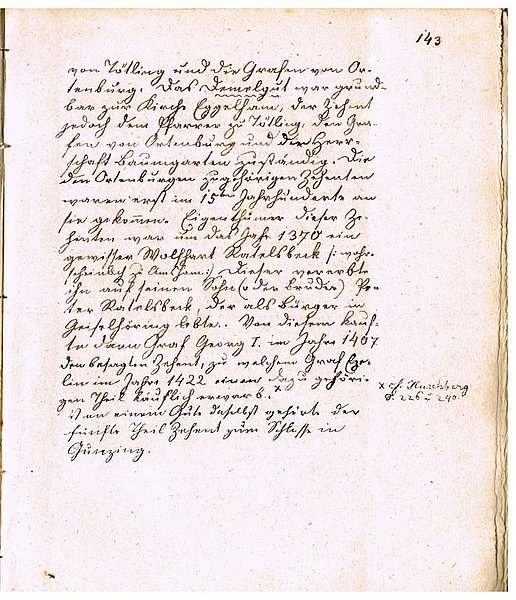 143
von Tötling und die Grafen von Or-
tenburg. Das Demelgut war grund-
bar zur Kirche Eggelham, der Zehent
jedoch dem Pfarrer zu Tötling, den Gra-
fen von Ortenburg und der Herr-
schaft Baumgarten zuständig. Die
den Ortenburgern zugehörigen Zehenten
waren erst im 15ten Jahrhunderte an
sie gekommen. Eigenthümer dieser Ze-
henten war um das Jahr 1370 ein
gewisser Wolfhart Ratelsbeck /: wahr-
scheinlich zu Amsham :/ Dieser vererbte
ihn auf seinen Sohn (oder Bruder) Pe-
ter Ratelsbeck, der als Bürger in
Geiselhöring lebte. Von diesem kauf-
te dann Graf Georg I. im Jahre 1407
den besagten Zehent, zu welchem Graf Eze-
lin im Jahre 1422 einen dazu gehöri-
gen Theil käuflich erwarb. x
x cf. Huschberg
S. 226 u 240.
Von einem Gute daselbst gehörte der
fünfte Theil Zehent zum Schlosse in
Gunzing.